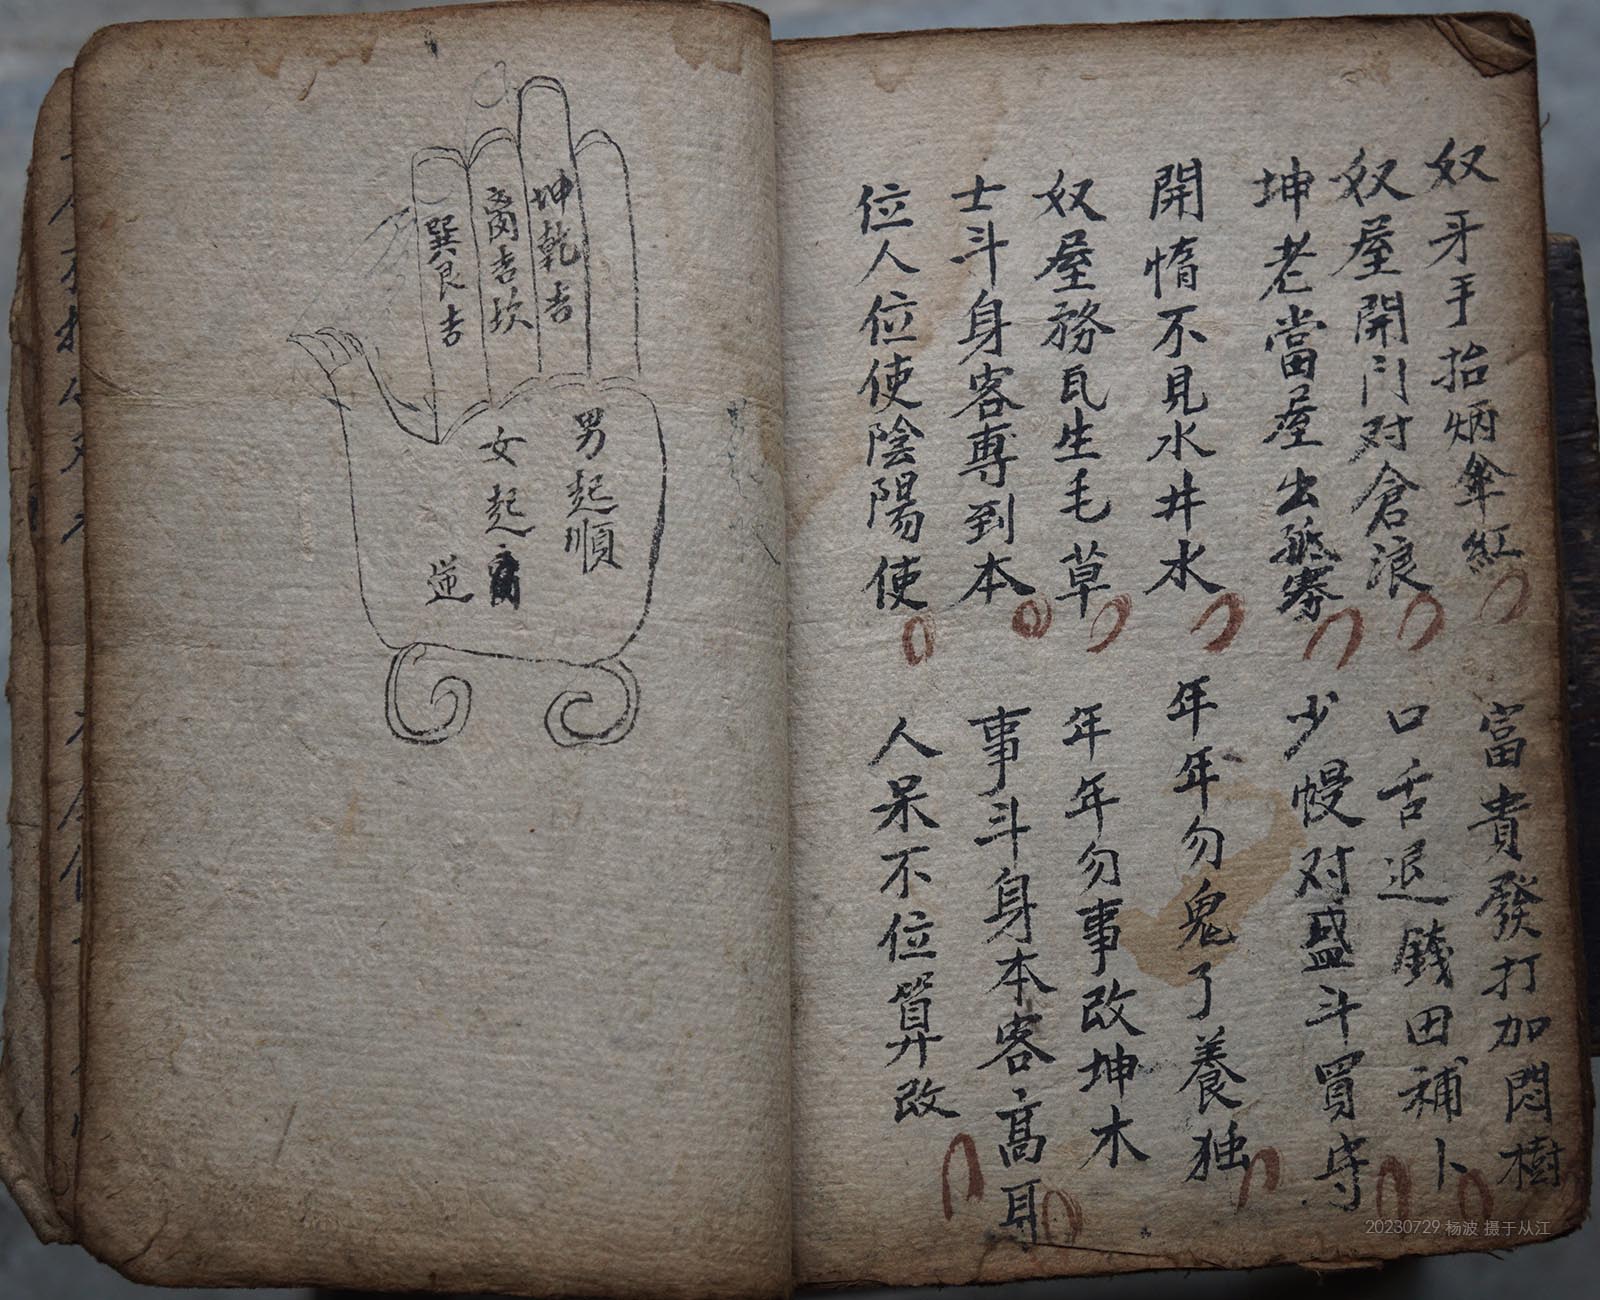 奴牙手抬炳傘紅
富貴發打加悶樹
奴屋開门对倉浪
口舌退錢田補卜
坤老當屋出孤寡
少幔对盛斗買守
開惰不見水井水
年年勿鬼了養独
奴屋務瓦生毛草
年年勿事改坤木
士斗身客專到本
事斗身本客高耳
位人位使陰陽使
人呆不位算改
坤乾吉
离吉坎
巽艮吉
男起順
女起
逆
20230729 杨波 摄于从江